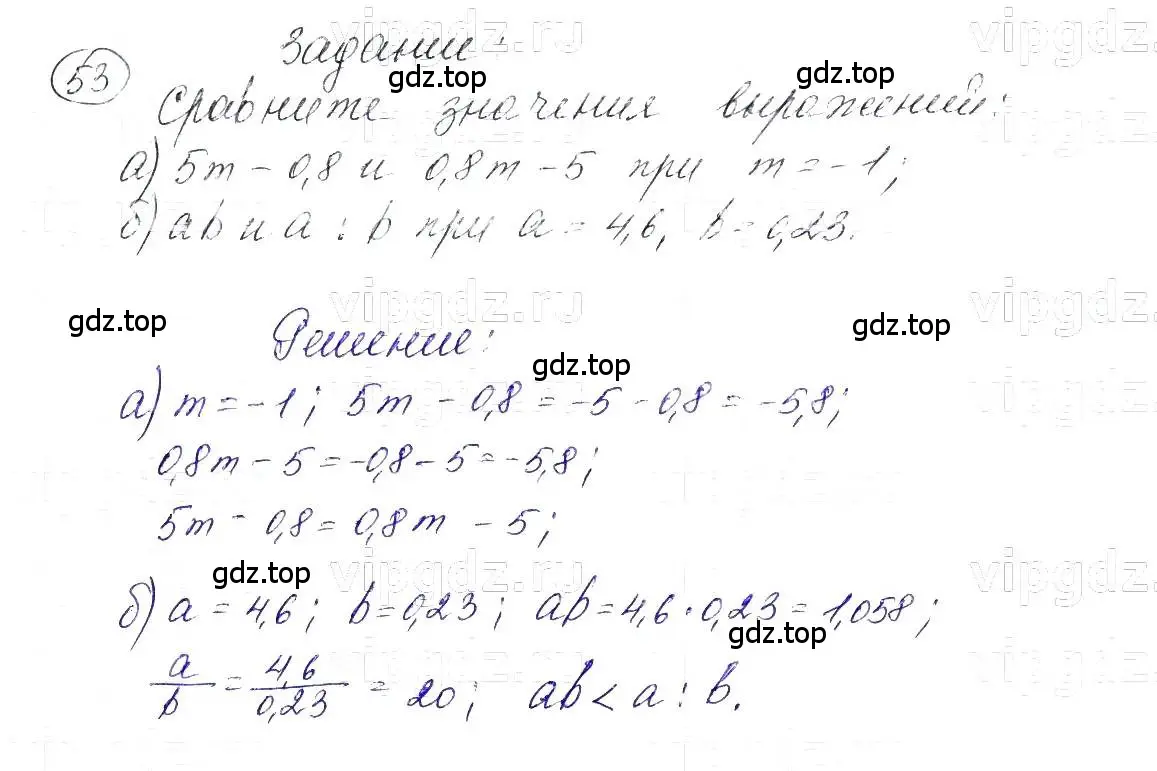 vipgdz.ru vipgdz.
53 Задание:
gdz.top gdz.top
Сравните значения выражений:
а) 5m - 0,8 и 0,8m - 5 при m = -1;
б) ab и a : b при a = 4,6, b = 0,23.
vipgdz.ru vipgdz.
gdz.top gdz.top
Решение:
gdz.top
а) m = -1; 5m - 0,8 = -5 - 0,8 = -5,8;
0,8m - 5 = -0,8 - 5 = -5,8;
5m - 0,8 = 0,8m - 5;
vipgdz.ru vipgdz.
gdz.top
б) a = 4,6; b = 0,23; ab = 4,6 · 0,23 = 1,058;
gdz.top
a/b = 4,6/0,23 = 20; ab < a : b.